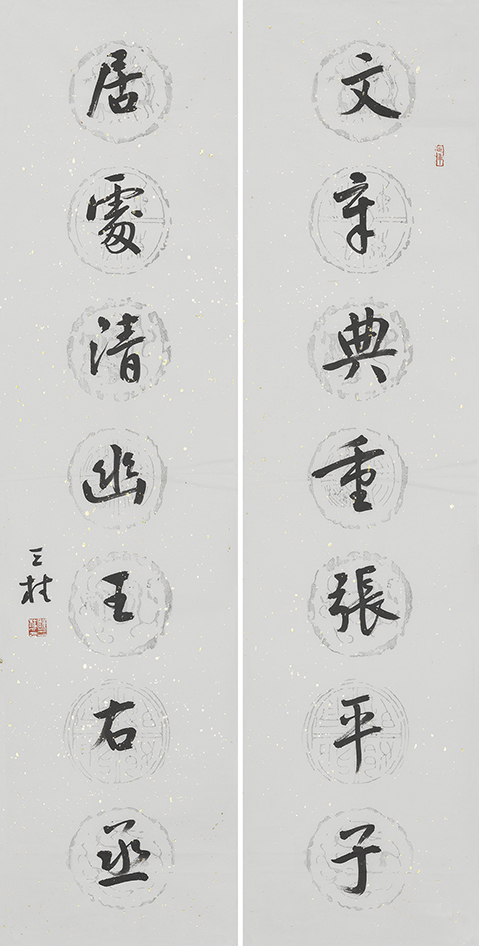 文章典重張平子
居處清幽王右丞
三桂